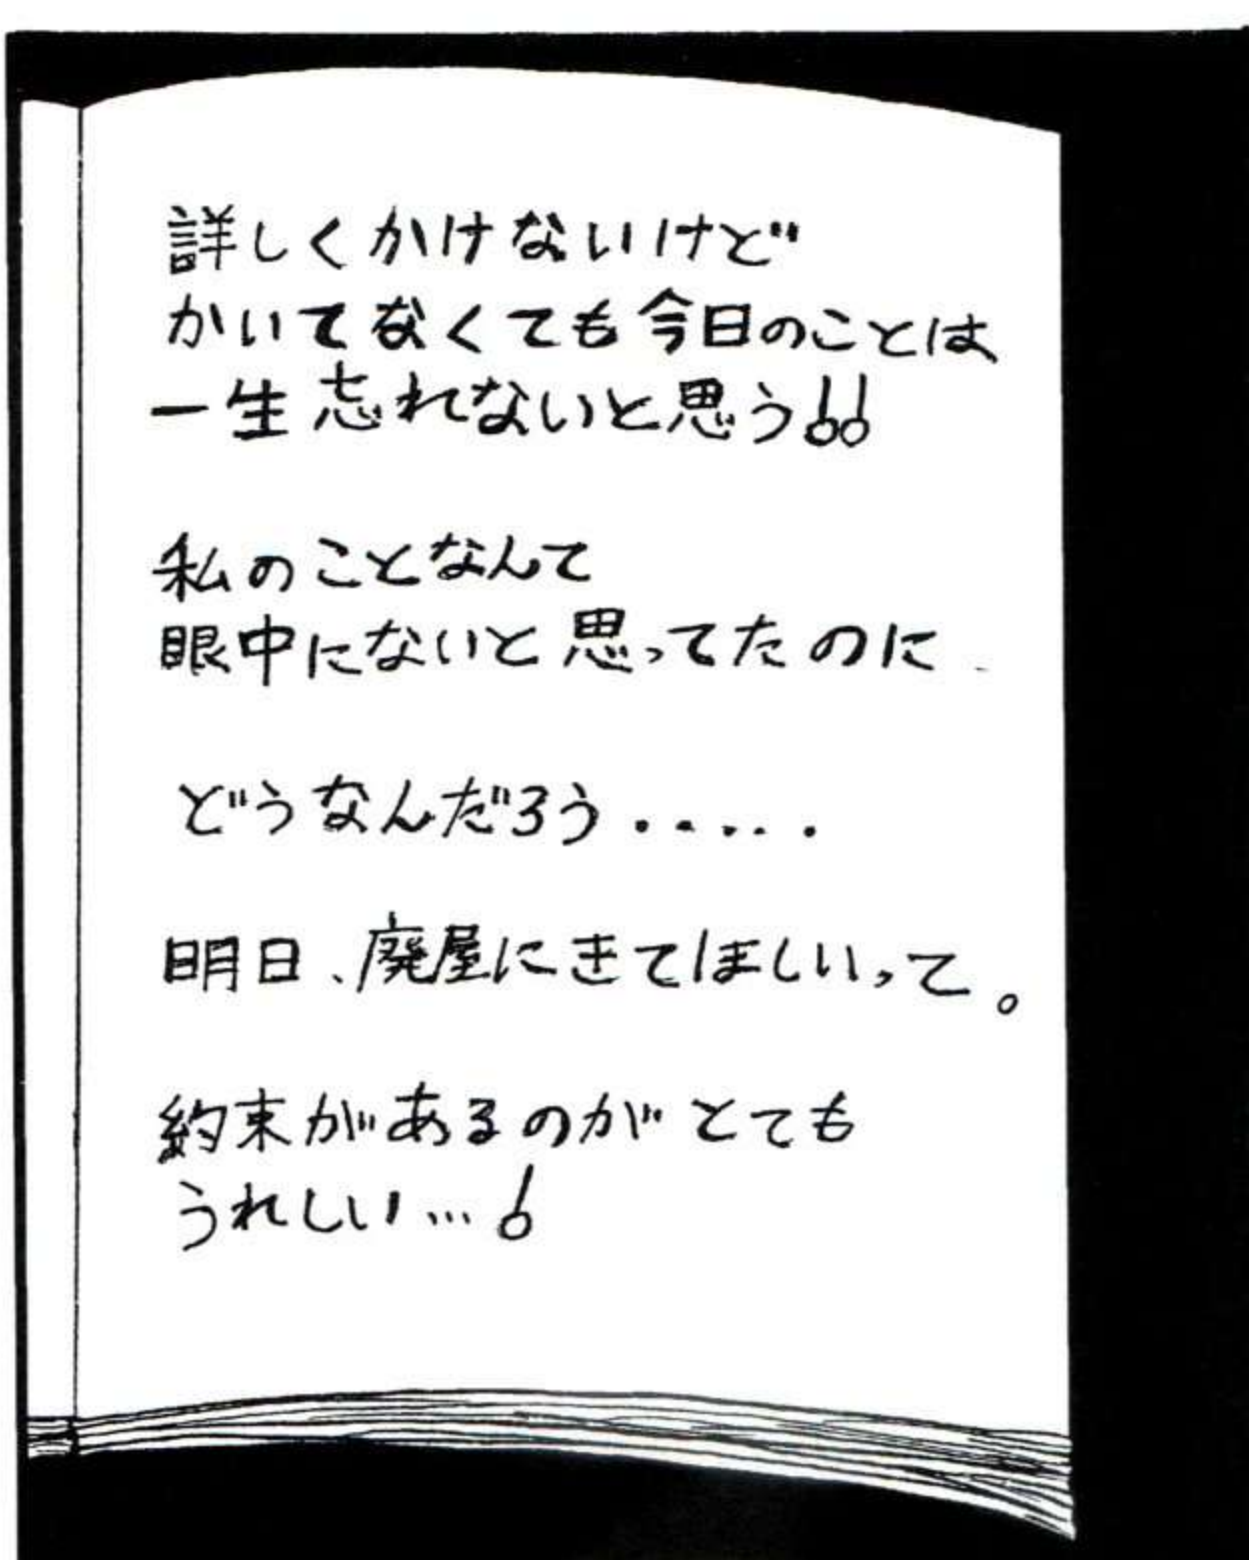 詳しくかけないけど
かいてなくても今日のことは
一生忘れないと思う!!
私のことなんて
眼中にないと思ってたのに
どうなんだろう.....
明日、廃屋にきてほしいって。
約束があるのがとても
うれしい…!